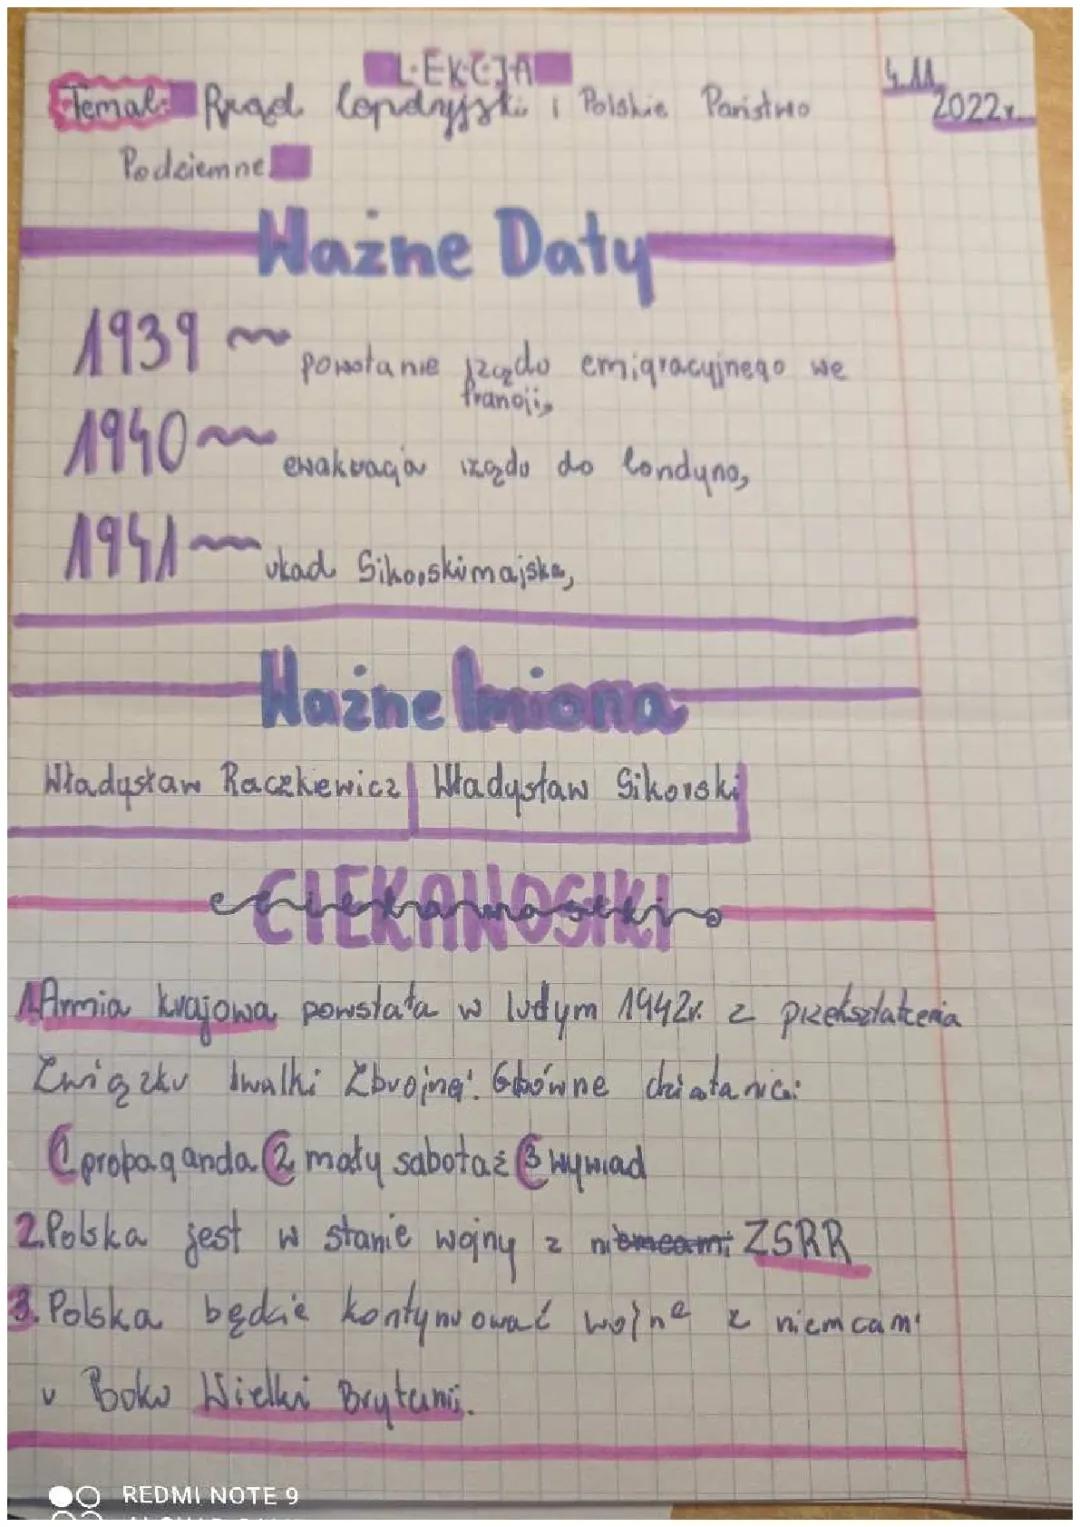 LEKCJA
4.11.2022r.
Temat: Rząd londyjski i Polskie Państwo
Podziemne
Ważne Daty
1939 ~ powstanie rządu emigracyjnego we
francji,
1940 ~ ewakuacja rządu do londynu,
1941 ~ układ Sikorskimajska,
Ważne Imiona
Władysław Raczkiewicz Władysław Sikorski
CIEKAWOSTKI
1.Armia krajowa powstała w lutym 1942r. z przekształcenia
Związku walki Zbrojnej. Główne działania:
1 propaganda 2 mały sabotaż 3 wywiad
2.Polska jest w stanie wojny z niemcami ZSRR
3.Polska będzie kontynuować wojnę z niemcami
u Boku Wielki Brytanii.
REDMI NOTE 9